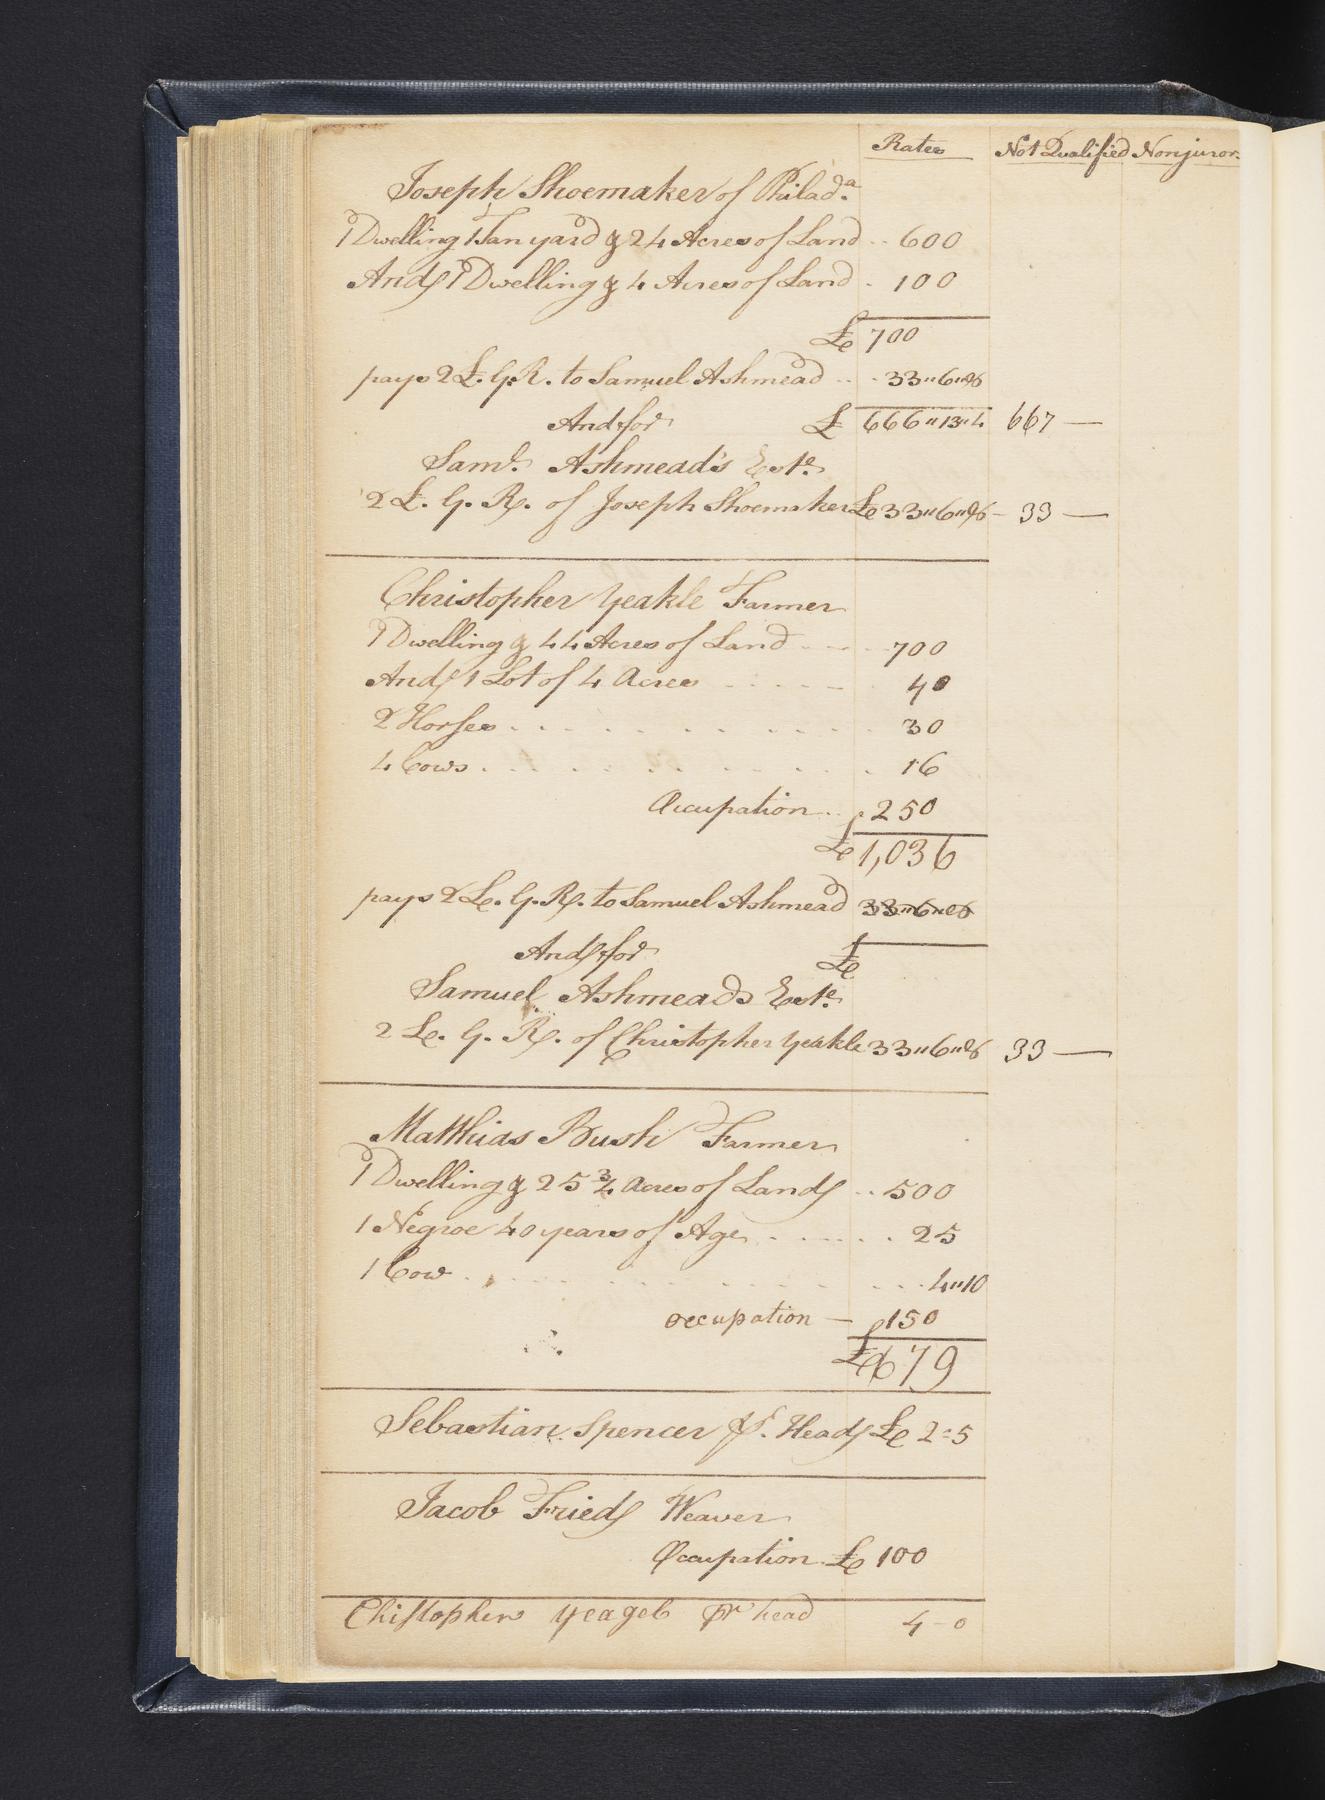 Rates Not Qualified Nonjuror
Joseph Shoemaker of Philad.a
1 Dwelling 1 Tan yard & 24 Acres of Land .. 600
And 1 Dwelling & 4 Acres of Land . 100
£ 700
pays 2 £. G.R. to Samuel Ashmead .. . 33"6"8
And for £ 666"13"4 667 —
Saml. Ashmead's Este.
2 £. G. R. of Joseph Shoemaker £ 33"6"8 - 33 —
Christopher Yeakle Farmer
1 Dwelling & 44 Acres of Land 700
And 1 Lot of 4 Acres 40
2 Horses 30
4 Cows 16
Occupation 250
£ 1,036
pays 2 £. G.R. to Samuel Ashmead 33"6"8
And for £
Samuel Ashmeads Este.
2 £. G. R. of Christopher Yeakle 33"6"8 33 —
Matthias Bush Farmer
1 Dwelling & 25 3/4 acres of Land .. 500
1 Negroe 40 years of Age 25
1 Cow 4"10
occupation — 150
£ 679
Sebastian Spencer p. Head £ 2=5
Jacob Fried Weaver
Occupation £ 100
Chistopher Yeagel pr head 4-0